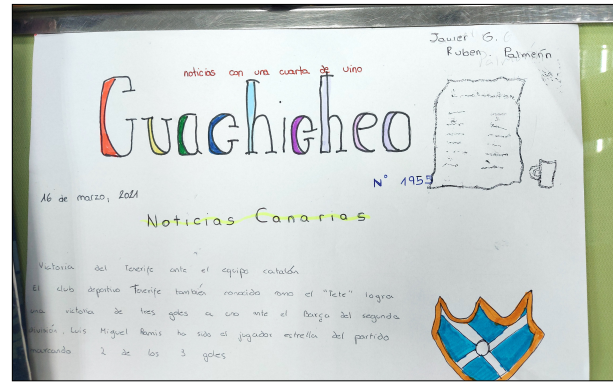 Javier G.
Ruben. Palmerín
noticias con una cuarta de vino
Guachicheo
N° 1955
16 de marzo, 2021
Noticias Canarias
Victoria del Tenerife ante el equipo catalán
El club deportivo Tenerife también conocido como el "Tete" logra
una victoria de tres goles a uno ante el Barça del segunda
división, Luis Miguel Ramis ha sido el jugador estrella del partido
marcando 2 de los 3 goles